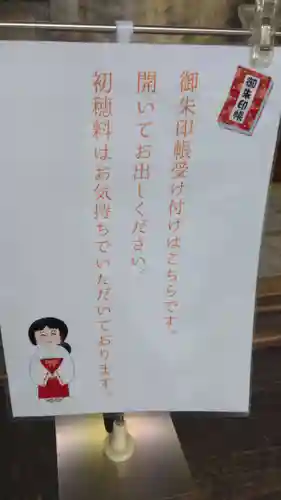 御朱印帳
御朱印帳受け付けはこちらです。
開いてお出しください。
初穂料はお気持ちでいただいております。